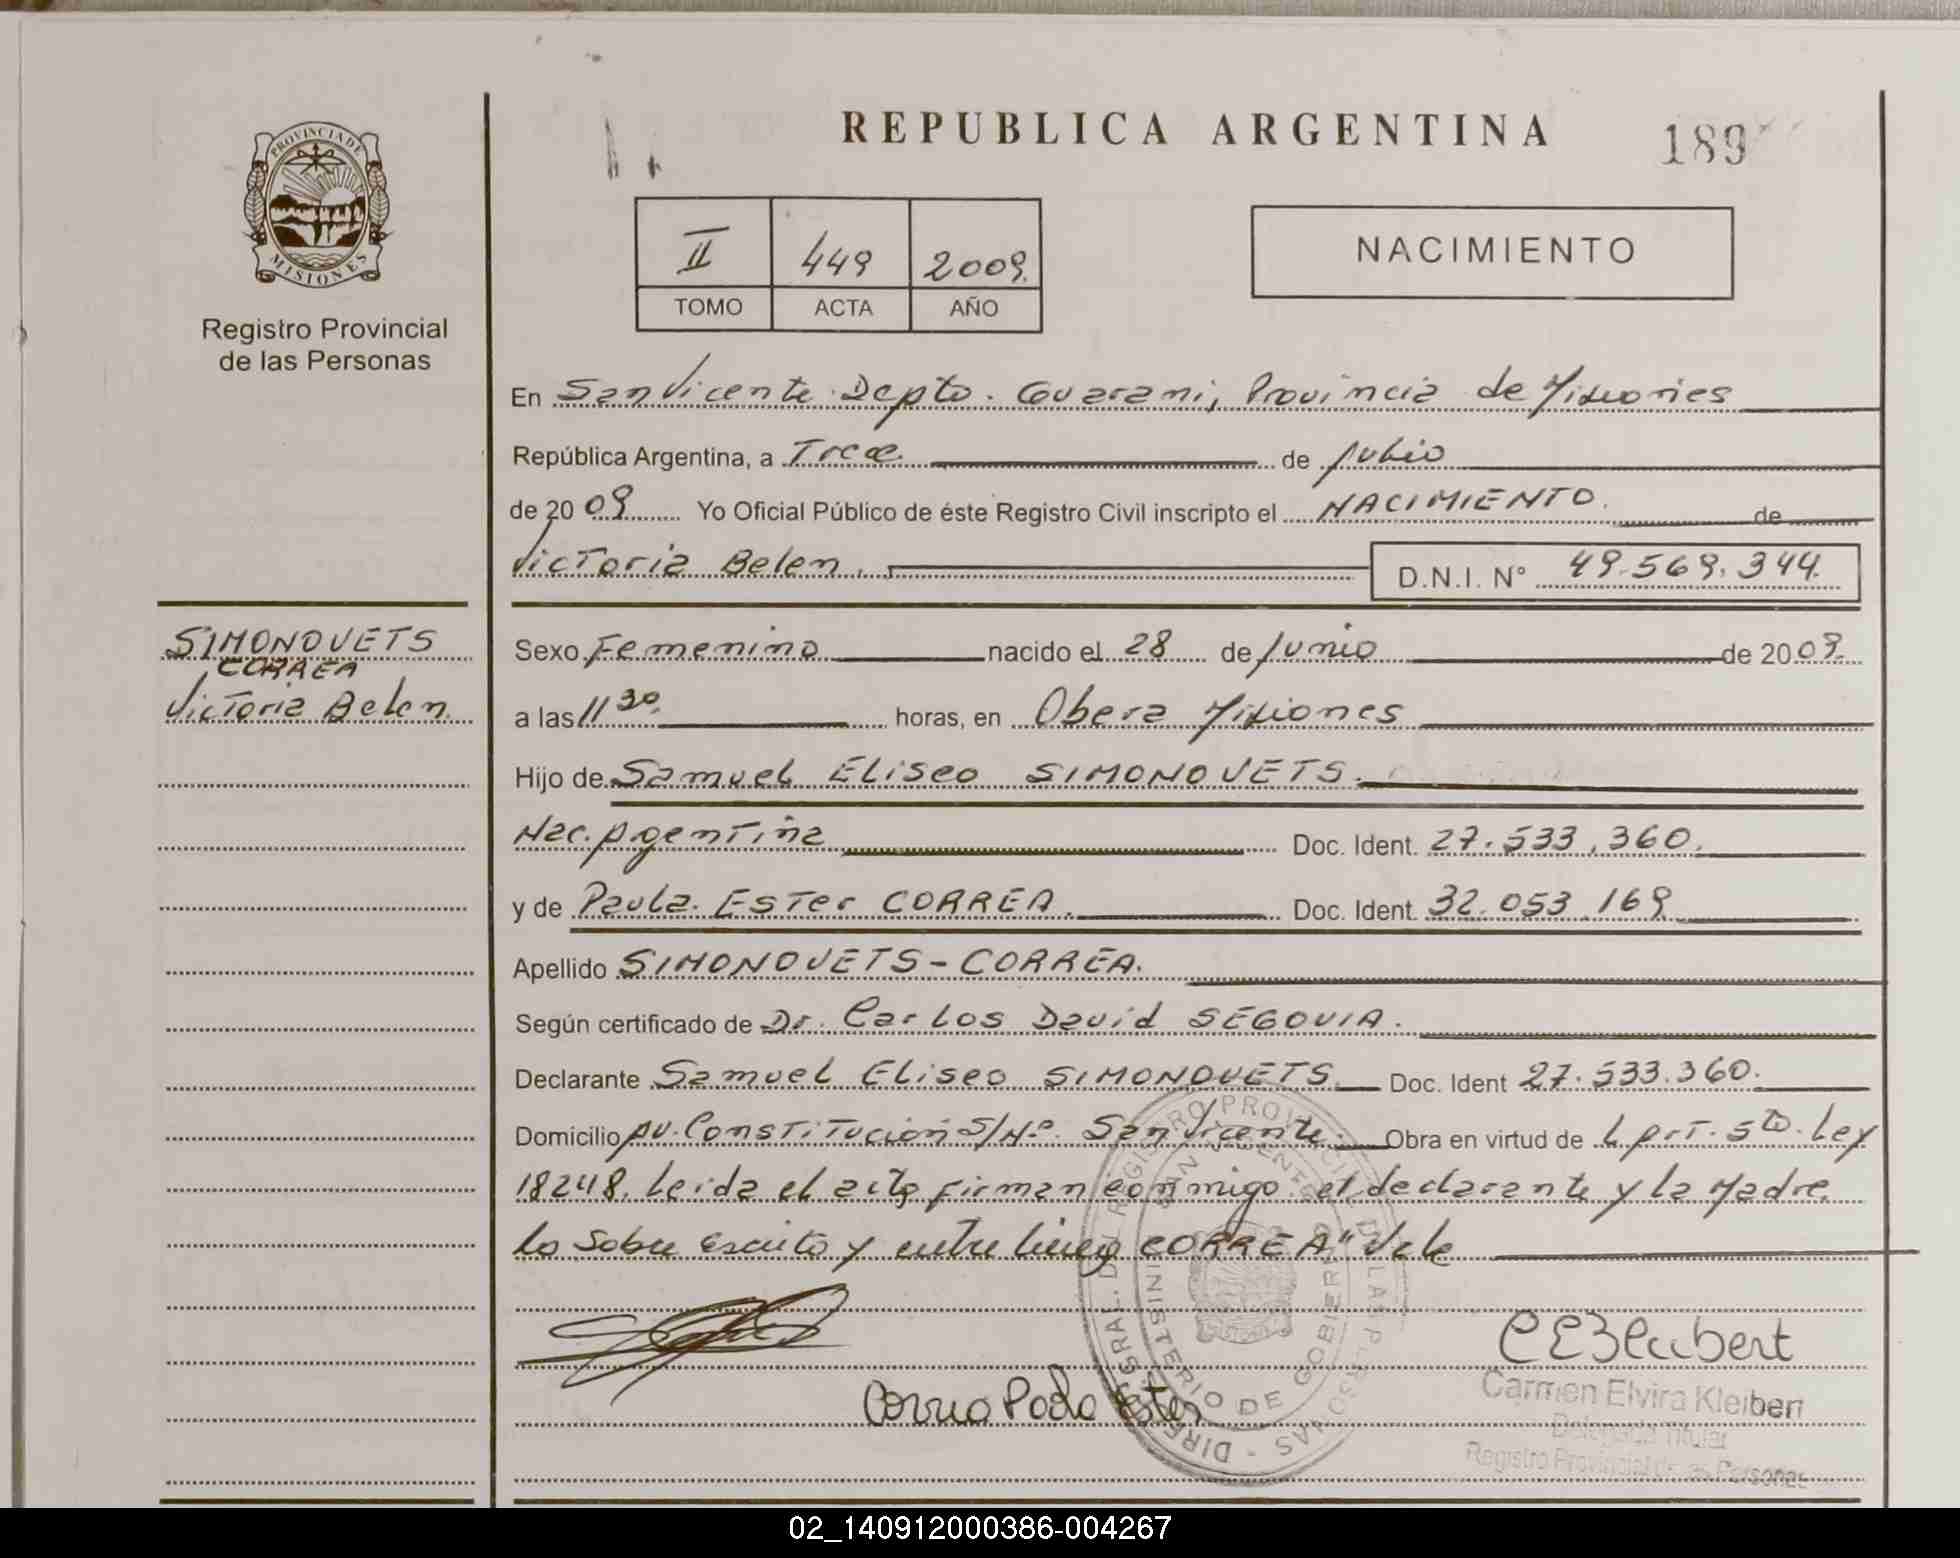 REPUBLICA ARGENTINA
189
PROVINCIA DE
MISIONES
Registro Provincial
de las Personas
II 449 2009.
TOMO ACTA AÑO
NACIMIENTO
En San Vicente Depto. Guarani, Provincia de Misiones
República Argentina, a Trece. de Julio
de 2009 Yo Oficial Público de éste Registro Civil inscripto el NACIMIENTO. de
Victoria Belen. D.N.I. N° 49.569.344.
SIMONOVETS
CORREA
Victoria Belen.
Sexo Femenino nacido el 28 de Junio de 2009.
a las 11 30. horas, en Obera Misiones
Hijo de Samuel Eliseo SIMONOVETS.
Nac. Argentina Doc. Ident. 27.533.360.
y de Paula Ester CORREA. Doc. Ident. 32.053.169
Apellido SIMONOVETS-CORREA.
Según certificado de Dr. Carlos David SEGOVIA.
Declarante Samuel Eliseo SIMONOVETS. Doc. Ident 27.533.360.
Domicilio Av. Constitución S/Nº. San Vicente. Obra en virtud de L Art. 5to. Ley
18248. Leida el acta firman conmigo el declarante y la Madre.
lo sobre escrito y entre linea CORREA" Vale
REGISTRO PROVINCIAL DE LAS PERSONAS
SAN VICENTE
MINISTERIO DE GOBIERNO
Correa Paola Ester
CEKleibert
Carmen Elvira Kleibert
Delegada Titular
Registro Provincial de las Personas
02_140912000386-004267